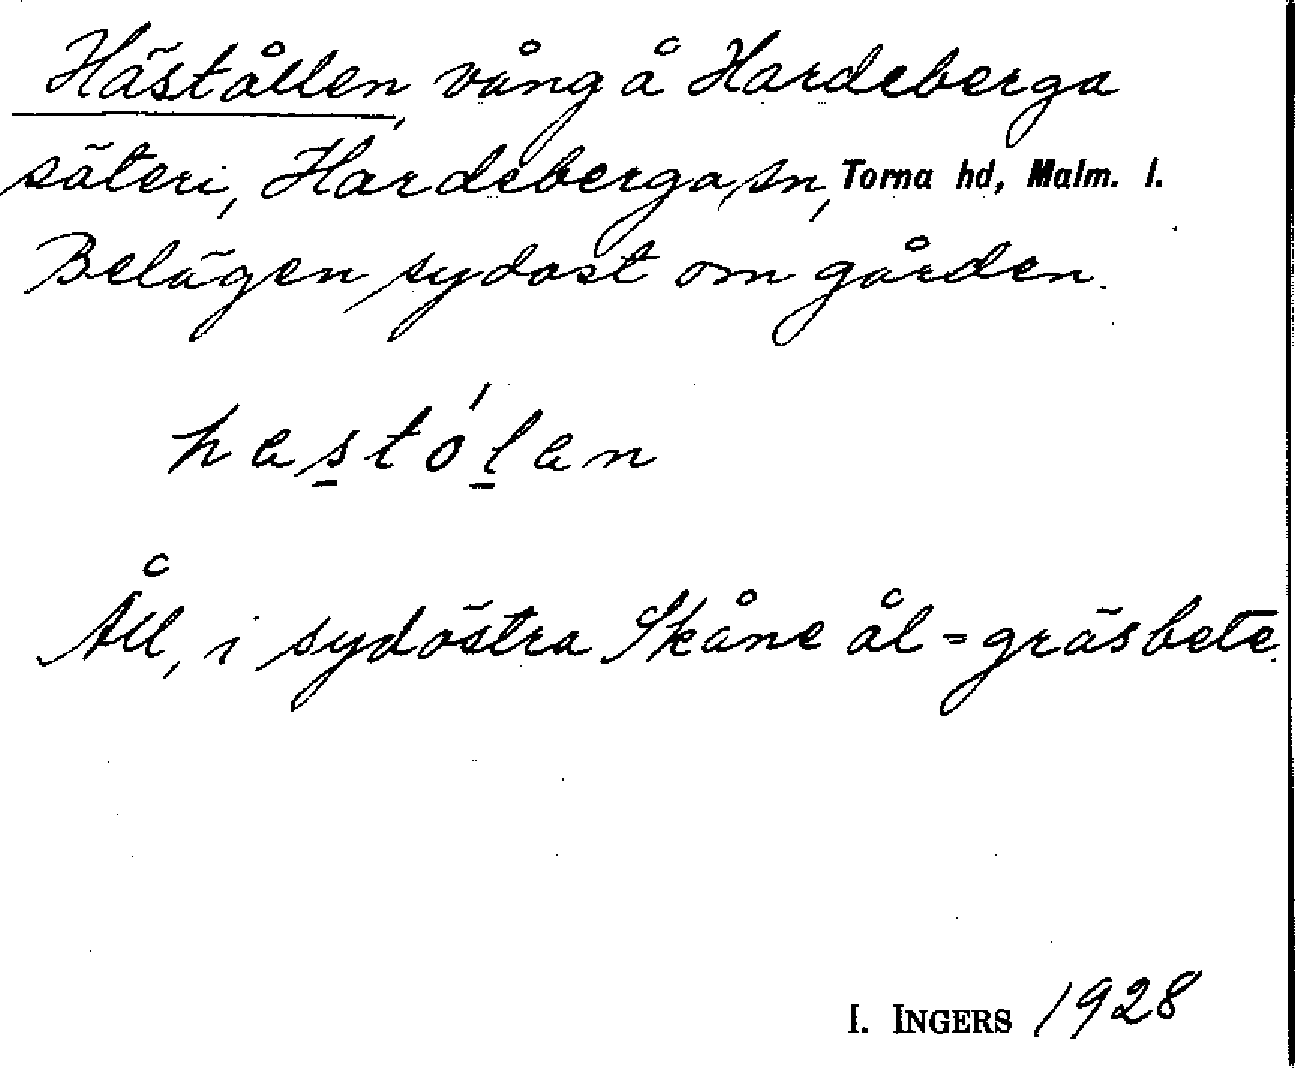 Häståłlen, vång å Hardeberga
säteri, Hardeberga sn, Torna hd, Malm. l.
Belägen sydost om gården.
hastó́lan
Åll, i sydöstra Skåne ål = gräsbete.
I. INGERS 1928